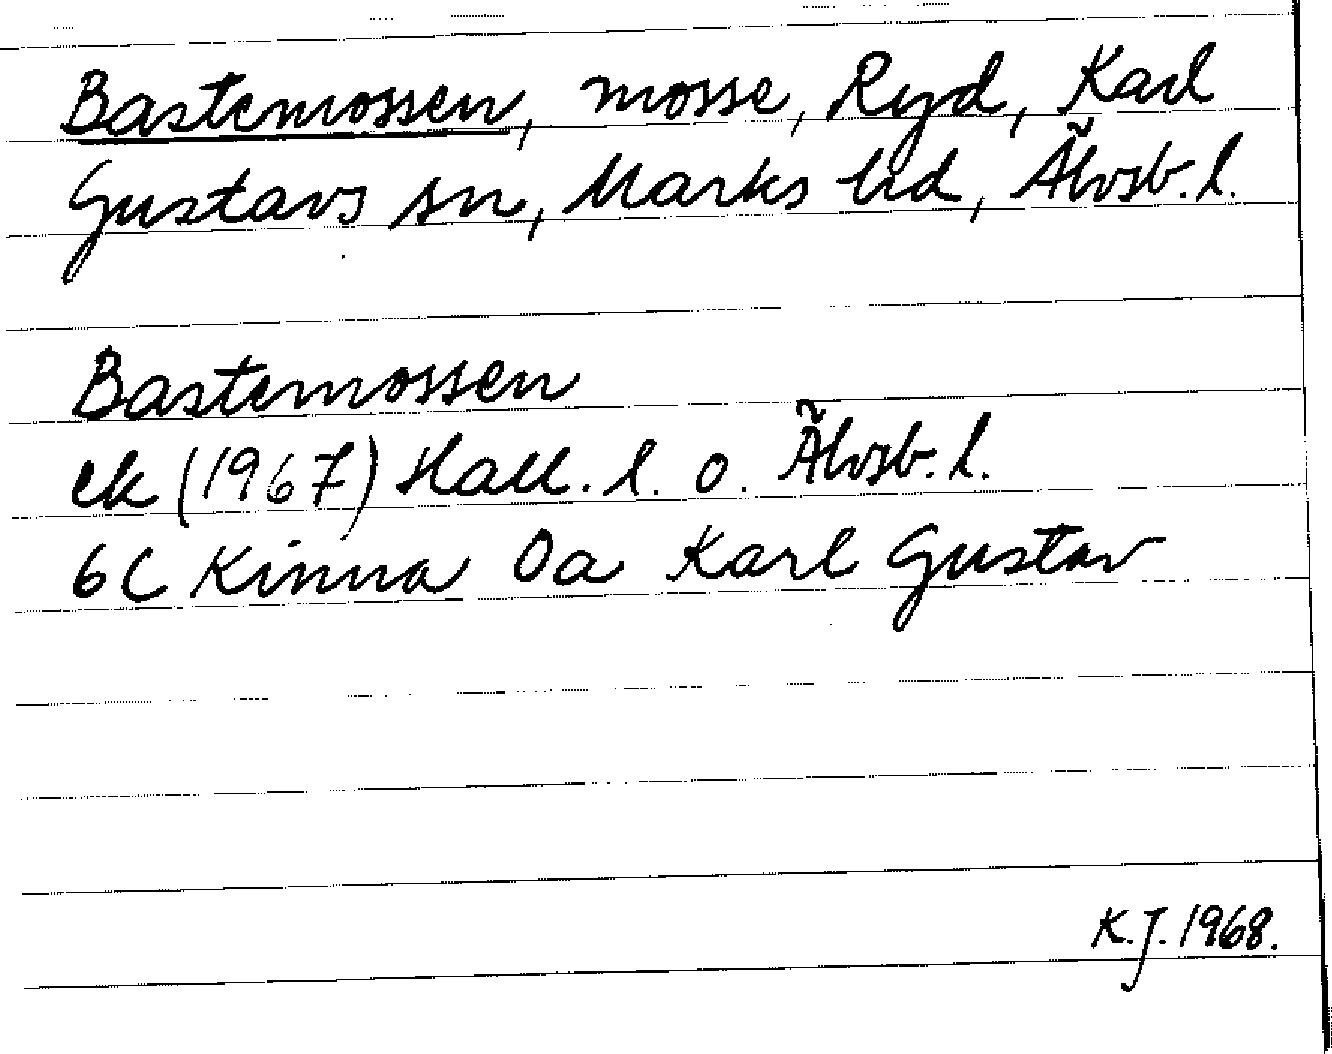 Bastemossen, mosse, Ryd, Karl
Gustavs sn, Marks hd, Älvsb. l.
Bastemossen
ek (1967) Hall. l. o. Älvsb. l.
6C Kinna 0a Karl Gustav
K.J. 1968.